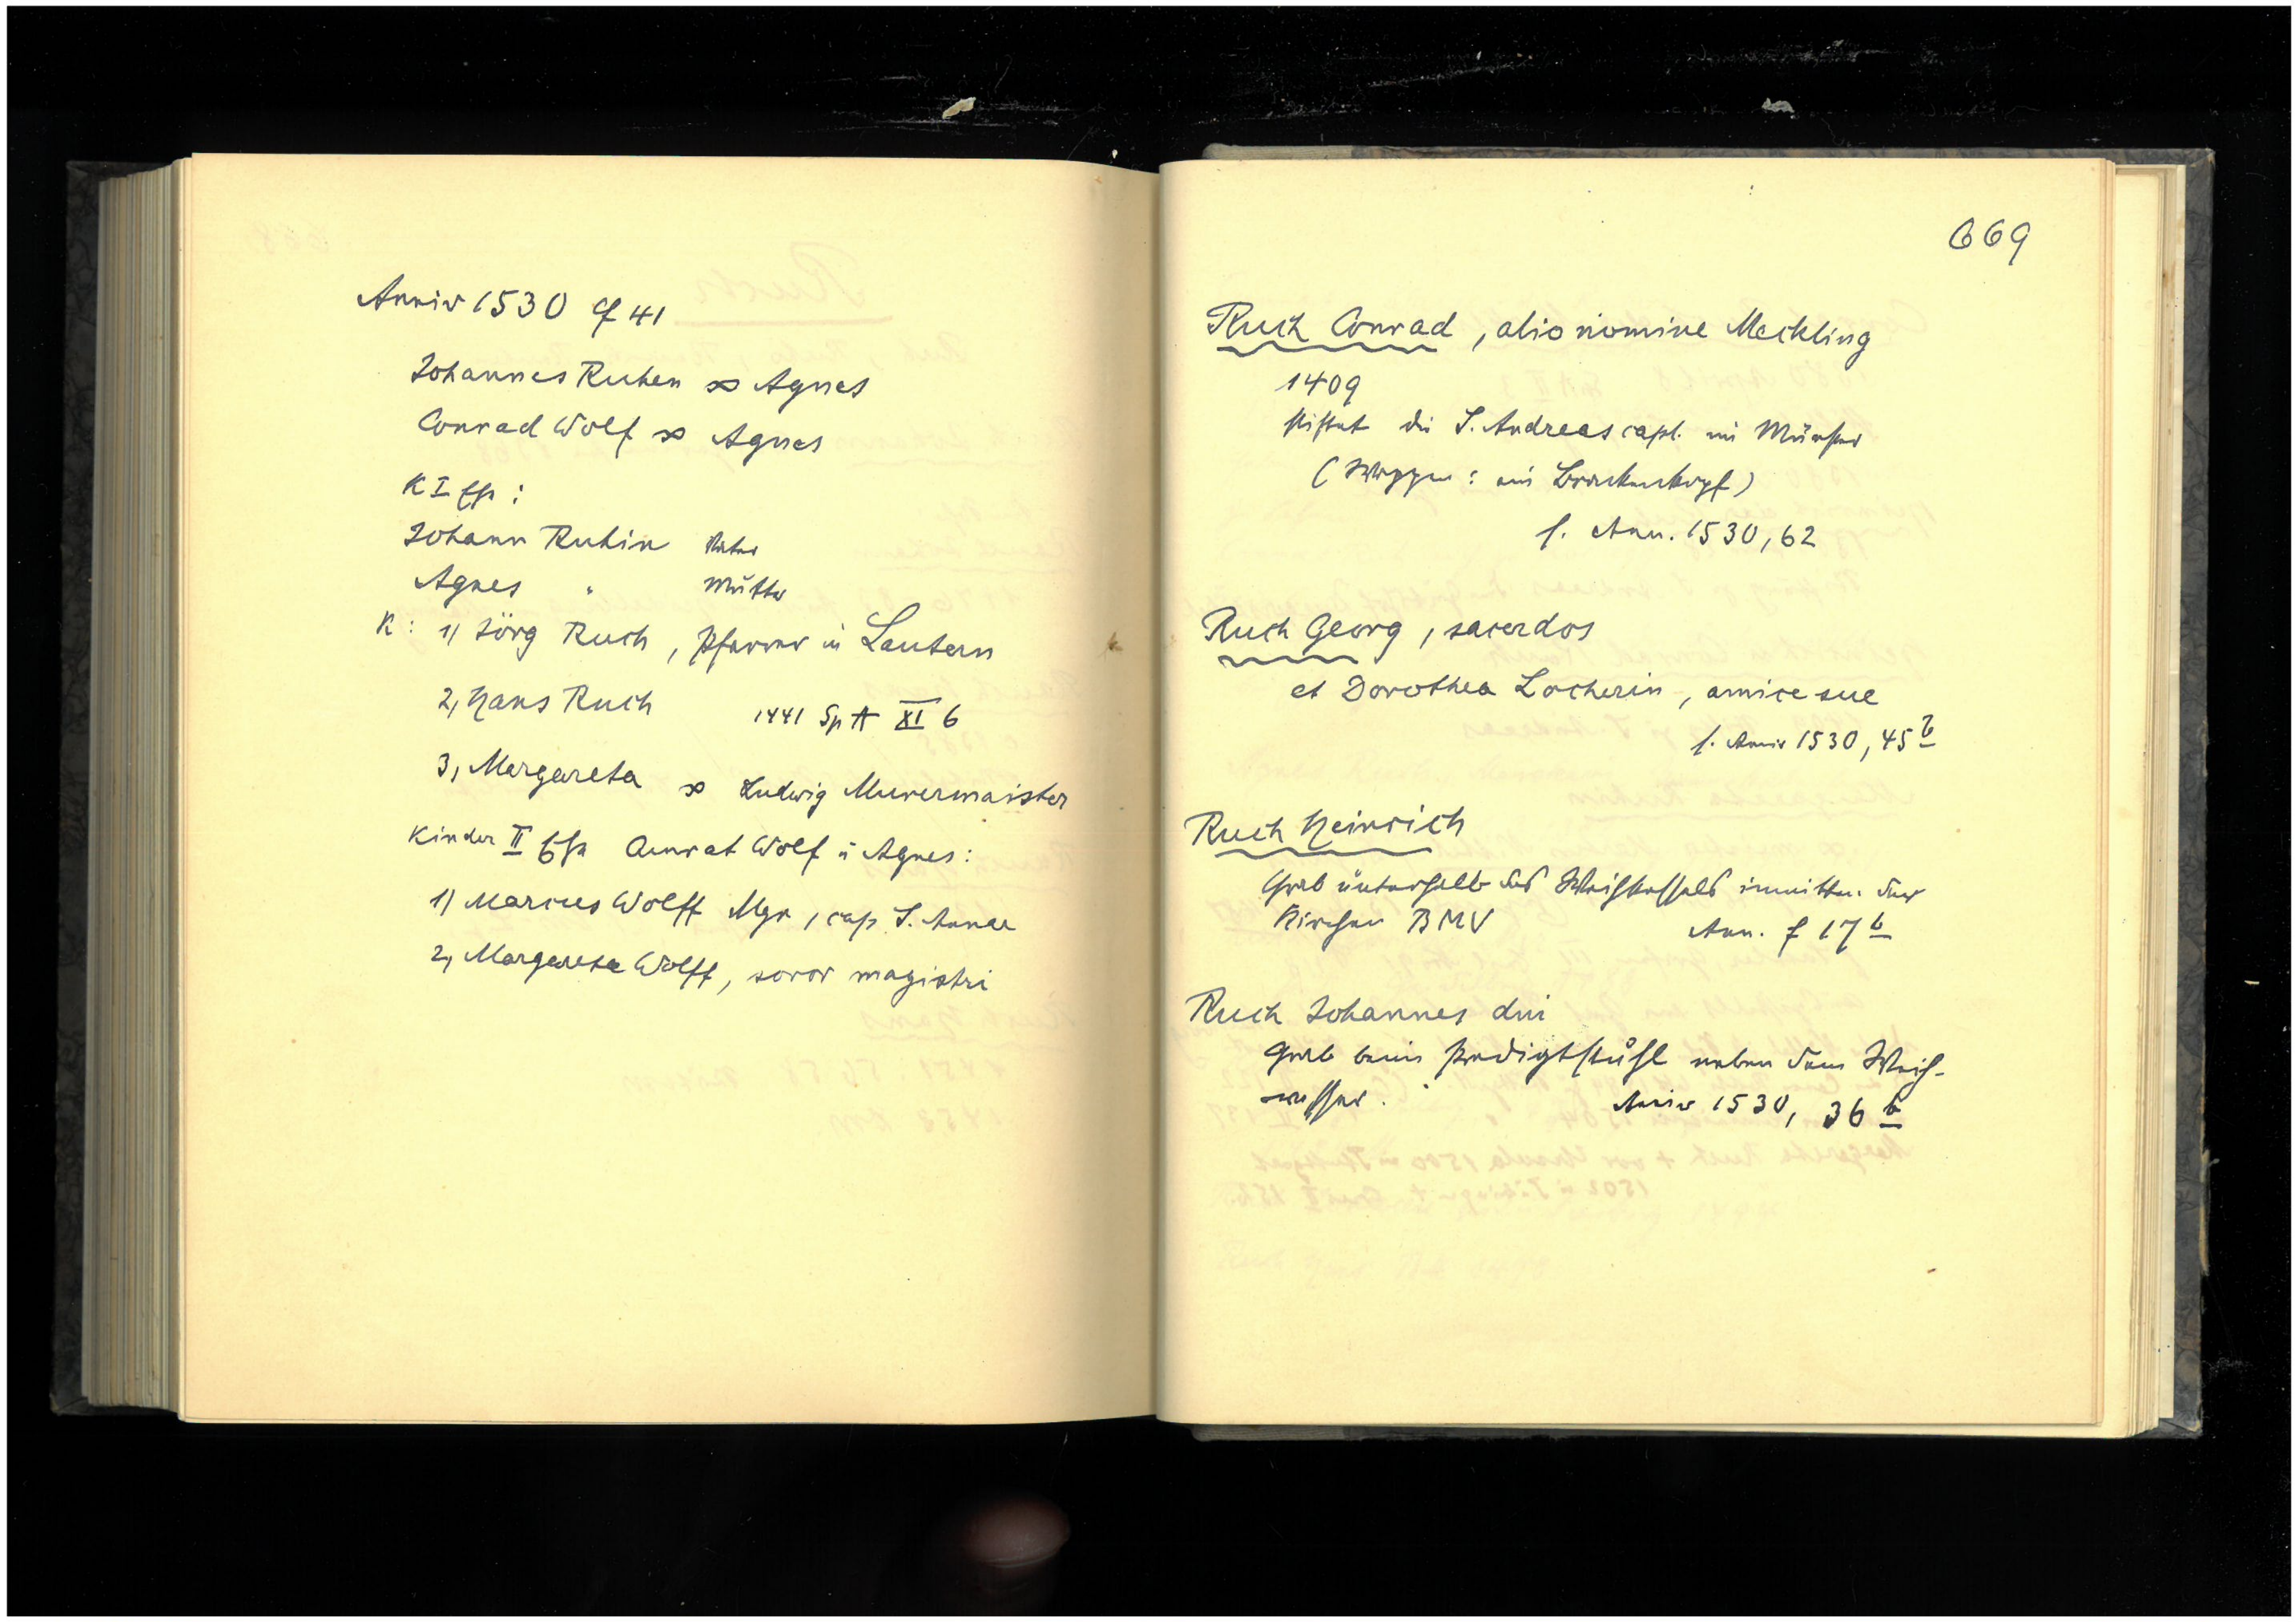 Anniv 1530 f 41
Johannes Ruhen ∞ Agnes
Conrad Wolf ∞ Agnes
K I Ehe :
Johann Ruhin Vater
Agnes " Mutter
K : 1) Jörg Ruch, Pfarrer in Lautern
2, Hans Ruch 1441 Sp A XI 6
3, Margareta ∞ Ludwig Murermaister
Kinder II Ehe Conrat Wolf u Agnes :
1) Marcus Wolff Mgr, cap S. Annae
2, Margareta Wolff, soror magistri
669
Ruch Conrad, alio nomine Meckling
1409
stiftet die S. Andreas capl. im Münster
(Wappen : ein Brackenkopf)
f. Ann. 1530, 62
Ruch Georg, sacerdos
et Dorothea Locherin, amice sue
f. Anniv 1530, 45 b
Ruch Heinrich
Grab unterhalb des Weihkessels inmitten der
Kirchen BMV Ann. f 17 b
Ruch Johannes dni
Grab beim Predigtstuhl neben dem Weih-
wasser. Anniv 1530, 36 b